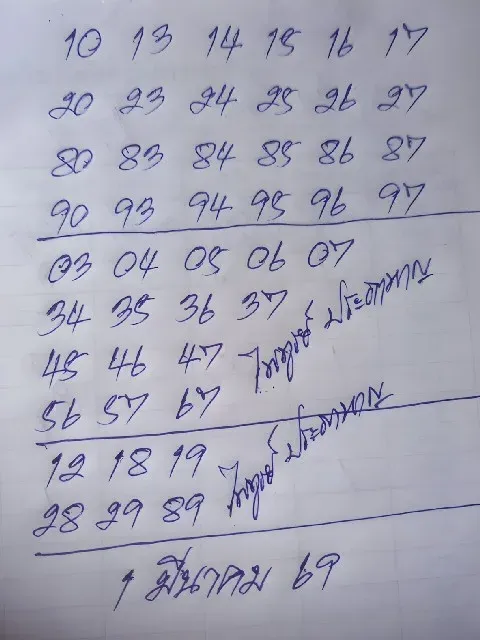 10 13 14 15 16 17
20 23 24 25 26 27
80 83 84 85 86 87
90 93 94 95 96 97
03 04 05 06 07
34 35 36 37
45 46 47
56 57 67
12 18 19
28 29 89
1 มีนาคม 69